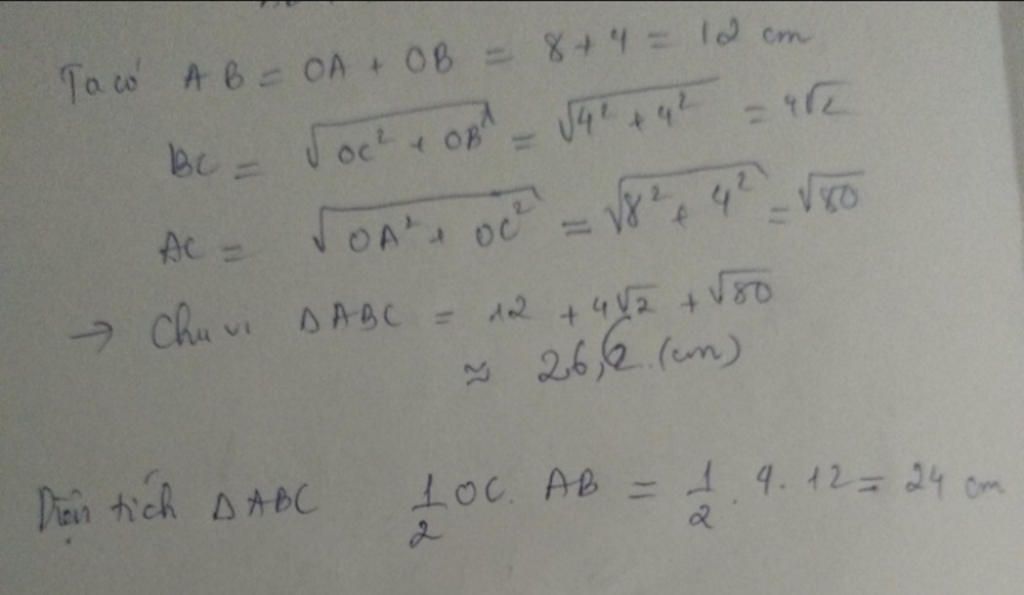 Ta có AB = OA + OB = 8 + 4 = 12 cm
BC = √(OC² + OB²) = √(4² + 4²) = 4√2
AC = √(OA² + OC²) = √(8² + 4²) = √80
→ Chu vi ΔABC = 12 + 4√2 + √80
≈ 26,6 (cm)
Diện tích ΔABC 1/2 OC. AB = 1/2 . 4. 12 = 24 cm